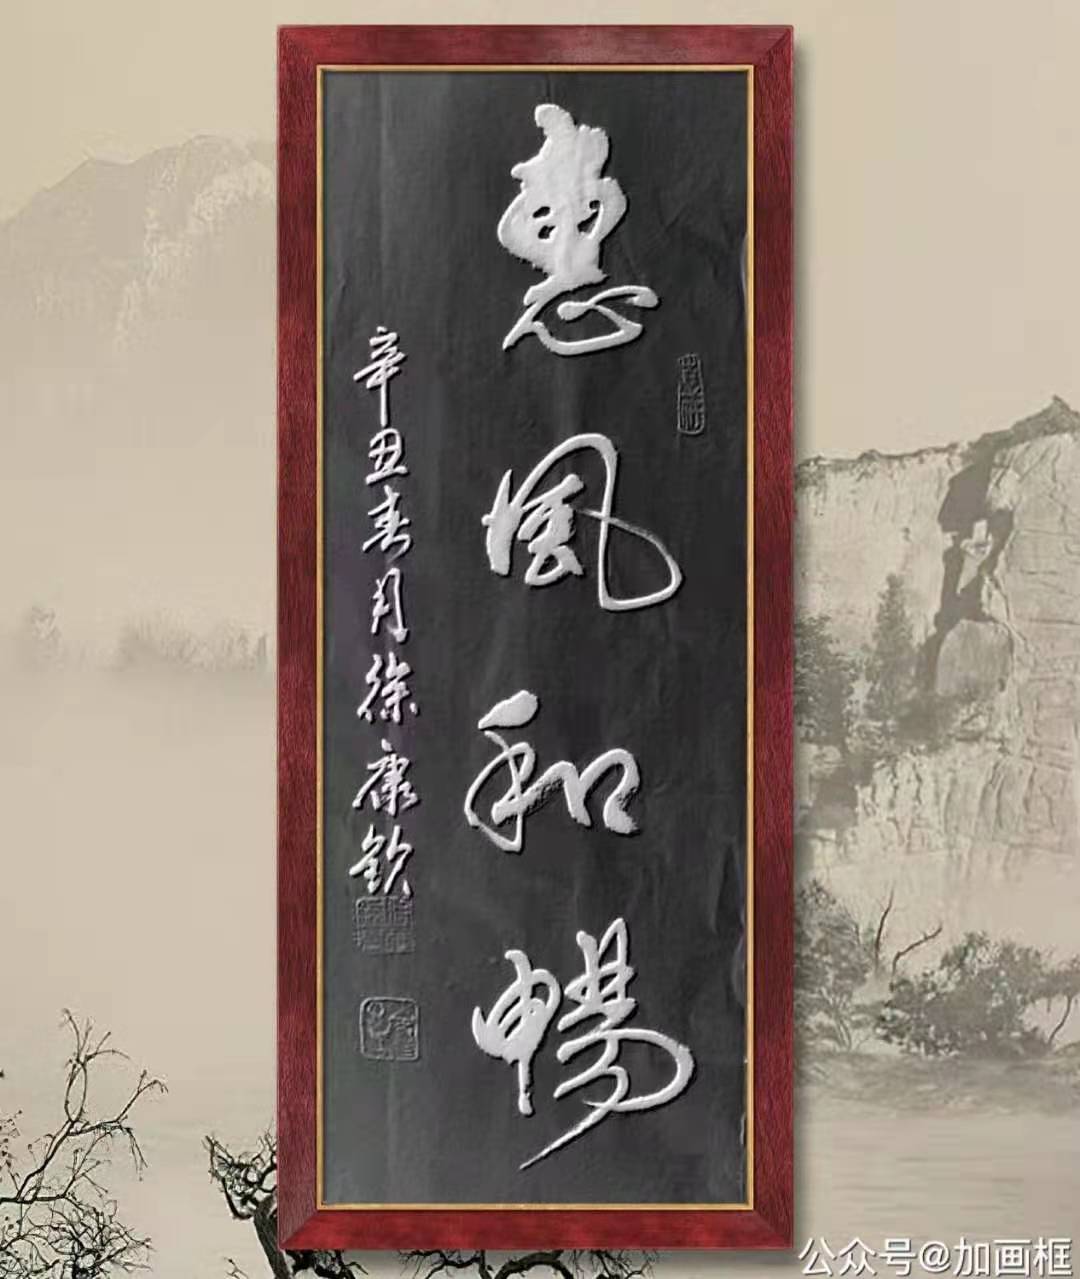 惠風和暢
辛丑春月徐康欽
公众号@加画框